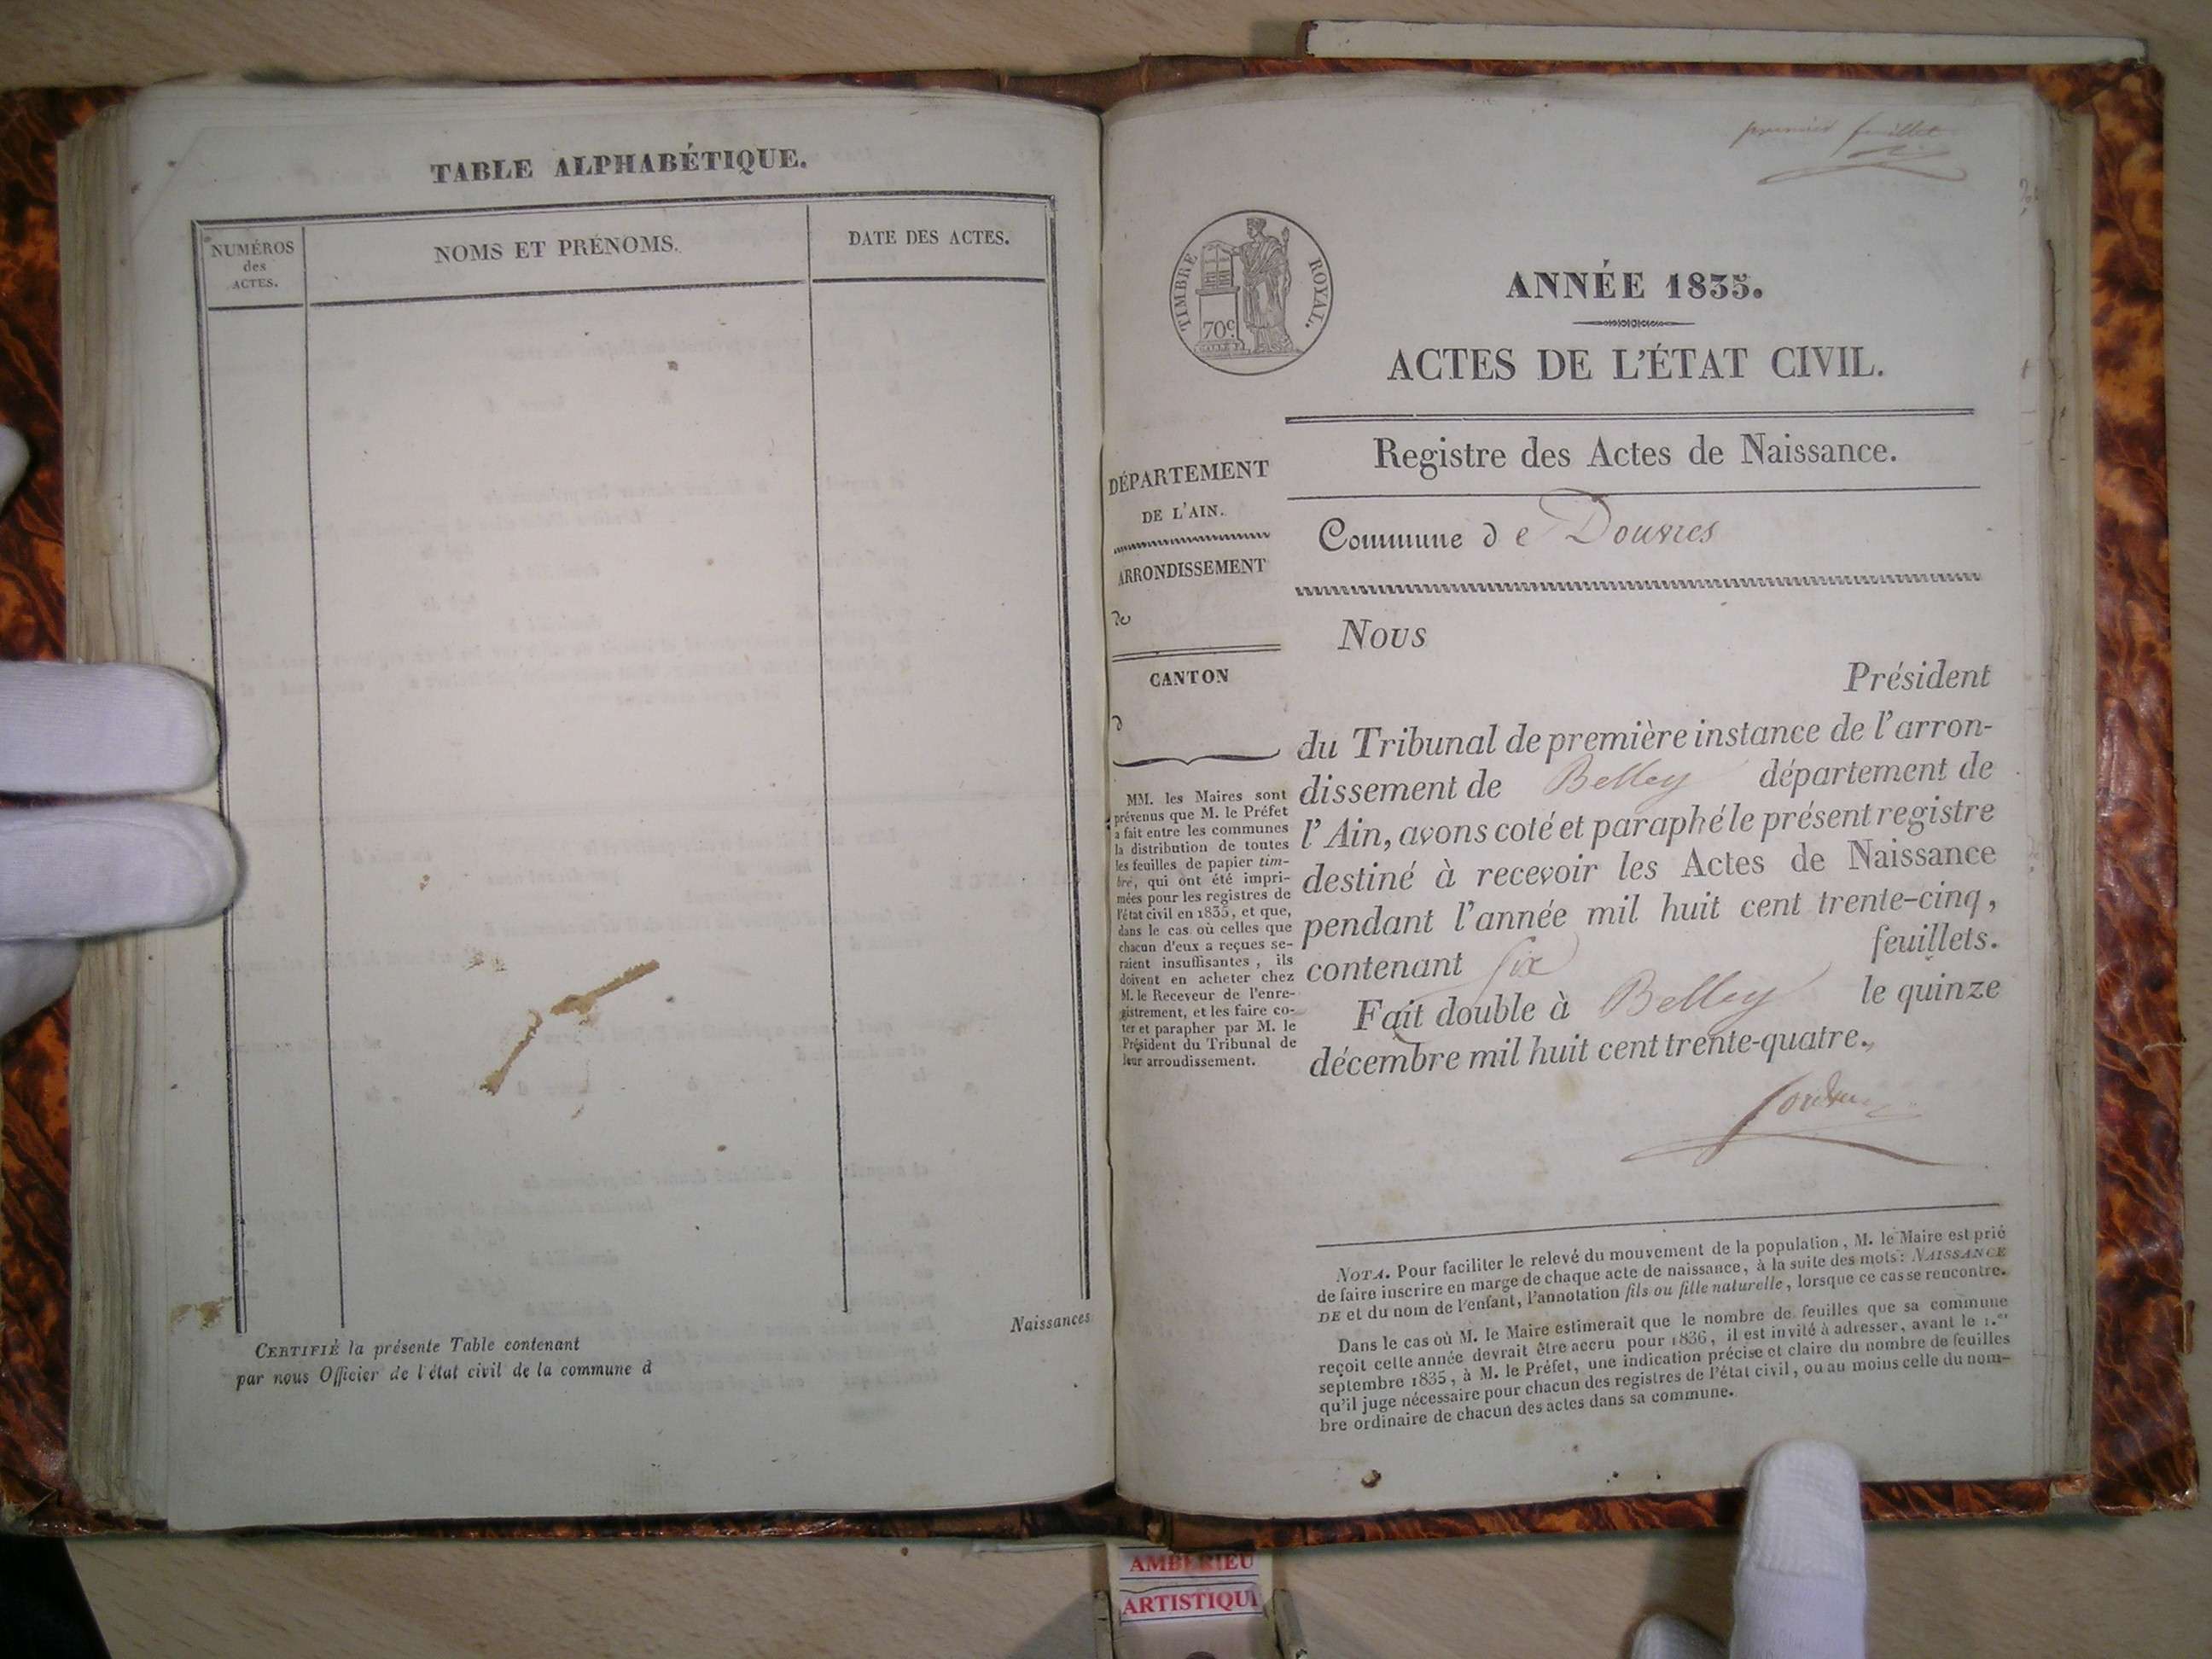 TABLE ALPHABÉTIQUE.
NUMÉROS
des
ACTES.
NOMS ET PRÉNOMS.
DATE DES ACTES.
CERTIFIÉ la présente Table contenant
par nous Officier de l'état civil de la commune d
Naissances
premier feuillet
TIMBRE ROYAL.
70c
ANNÉE 1835.
ACTES DE L'ÉTAT CIVIL.
Registre des Actes de Naissance.
Commune de Douvres
DÉPARTEMENT
DE L'AIN.
ARRONDISSEMENT
de
CANTON
d
MM. les Maires sont
prévenus que M. le Préfet
a fait entre les communes
la distribution de toutes
les feuilles de papier tim-
bré, qui ont été impri-
mées pour les registres de
l'état civil en 1835, et que,
dans le cas où celles que
chacun d'eux a reçues se-
raient insuffisantes, ils
doivent en acheter chez
M. le Receveur de l'enre-
gistrement, et les faire co-
ter et parapher par M. le
Président du Tribunal de
leur arroudissement.
Nous
Président
du Tribunal de première instance de l'arron-
dissement de Belley département de
l'Ain, avons coté et paraphé le présent registre
destiné à recevoir les Actes de Naissance
pendant l'année mil huit cent trente-cinq,
contenant six feuillets.
Fait double à Belley le quinze
décembre mil huit cent trente-quatre.
NOTA. Pour faciliter le relevé du mouvement de la population, M. le Maire est prié
de faire inscrire en marge de chaque acte de naissance, à la suite des mots: NAISSANCE
DE et du nom de l'enfant, l'annotation fils ou fille naturelle, lorsque ce cas se rencontre.
Dans le cas où M. le Maire estimerait que le nombre de feuilles que sa commune
reçoit cette année devrait être accru pour 1836, il est invité à adresser, avant le 1.er
septembre 1835, à M. le Préfet, une indication précise et claire du nombre de feuilles
qu'il juge nécessaire pour chacun des registres de l'état civil, ou au moins celle du nom-
bre ordinaire de chacun des actes dans sa commune.
AMBERIEU
ARTISTIQU